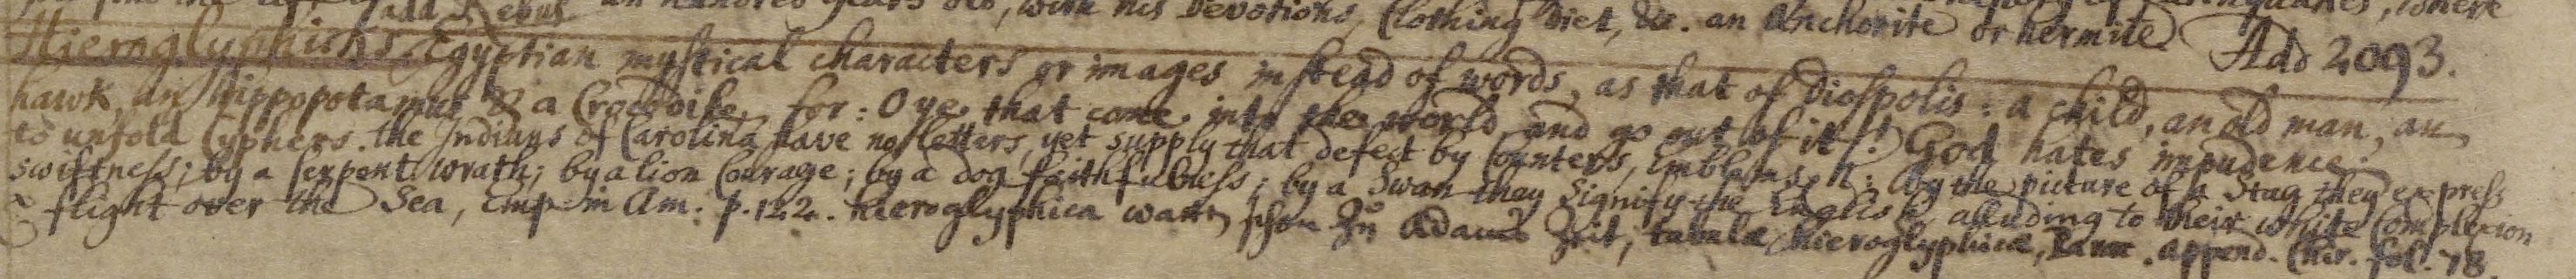 add Rebus an hundred years old, with his Devotions, Clothing Diet, &c. an Anchorite or hermite. where
Hieroglyphicks, Egyptian mystical characters or images instead of words, as that of Diospolis: a child, an old man, an Add 2093.
hawk, an hippopotamus & a Crocodile, for: O ye, that come into the world, and go out of it! God hates impudence.
to unfold Cyphers. the Indians of Carolina have no letters, yet supply that defect by Counters, Emblems, n: by the picture of a Stag they express
swiftness; by a serpent wrath; by a lion Courage; by a dog faithfulness; by a Swan they signify the English, alluding to their white Complexion
& flight over the Sea, Emp. in Am: p. 122. hieroglyphica waren schon zu Adams Zeit, tabulæ hieroglyphicæ, append. Cher. fol. 78